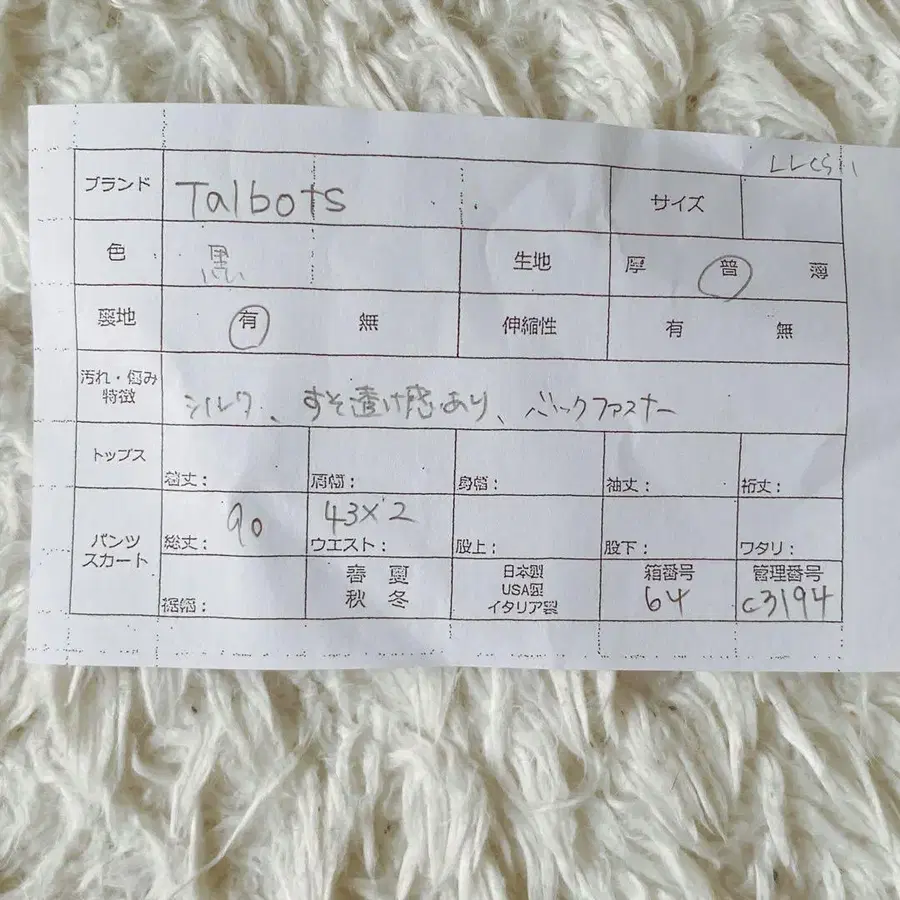 LLCS11
ブランド Talbots サイズ
色 黒 生地 厚 普 薄
裏地 有 無 伸縮性 有 無
汚れ・傷み
特徴
シルク、すそ透け感あり、バックファスナー
トップス 着丈： 肩幅： 身幅： 袖丈： 裄丈：
パンツ
スカート
総丈： 90 ウエスト： 43×2 股上： 股下： ワタリ：
裾幅：
春 夏
秋 冬
日本製
USA製
イタリア製
箱番号
64
管理番号
C3194